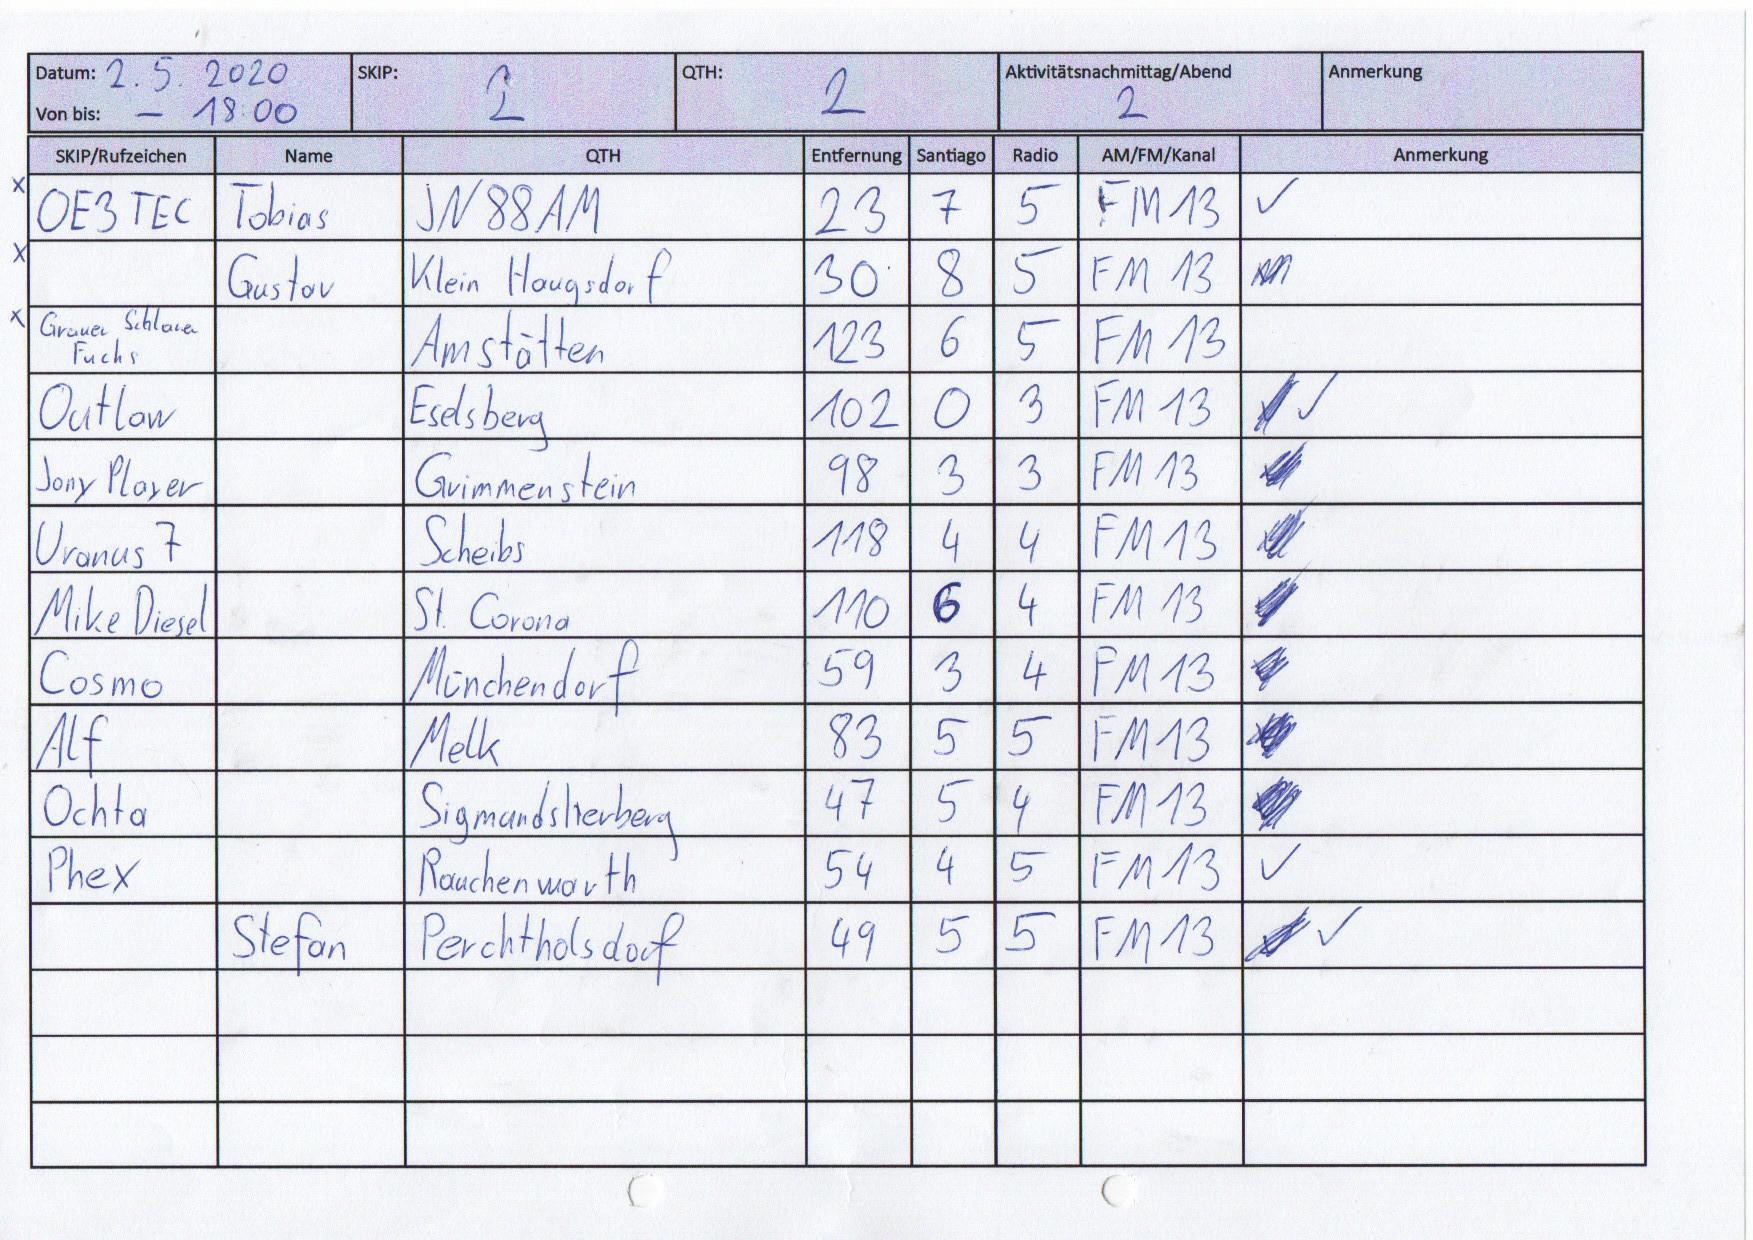 Datum: 2.5. 2020 SKIP: 2 QTH: 2 Aktivitätsnachmittag/Abend 2 Anmerkung
Von bis: – 18:00
SKIP/Rufzeichen Name QTH Entfernung Santiago Radio AM/FM/Kanal Anmerkung
x OE3TEC Tobias JN88AM 23 7 5 FM 13 ✓
x Gustav Klein Haugsdorf 30 8 5 FM 13
x Grauer Schlauer
Fuchs Amstätten 123 6 5 FM 13
Outlaw Eselsberg 102 0 3 FM 13 ✓
Jony Player Grimmenstein 98 3 3 FM 13
Uranus 7 Scheibs 118 4 4 FM 13
Mike Diesel St. Corona 110 6 4 FM 13
Cosmo Münchendorf 59 3 4 FM 13
Alf Melk 83 5 5 FM 13
Ochta Sigmundsherberg 47 5 4 FM 13
Phex Rauchenwarth 54 4 5 FM 13 ✓
Stefan Perchtholsdorf 49 5 5 FM 13 ✓